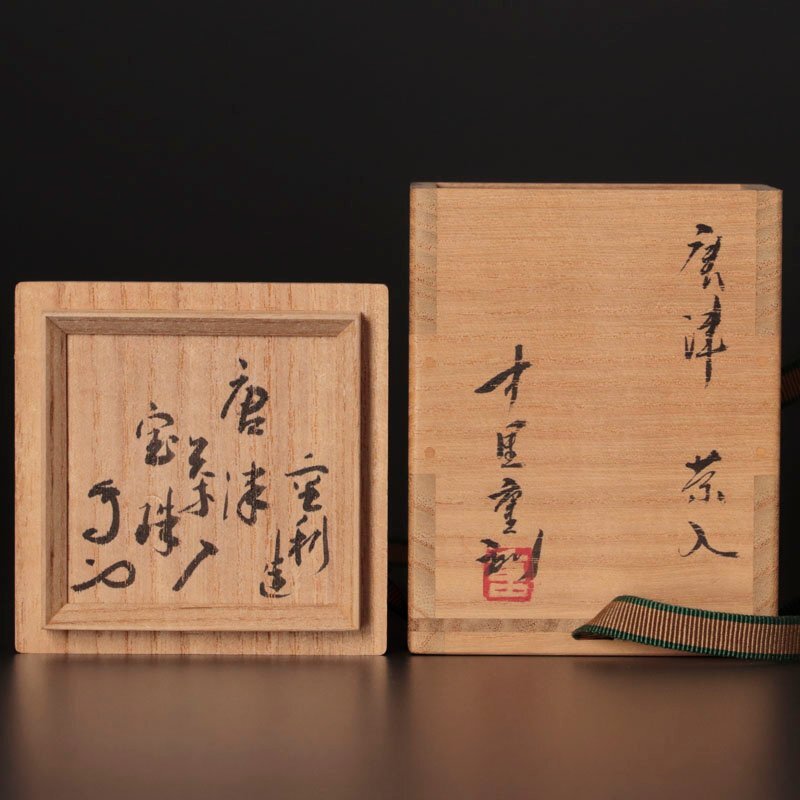 重利造
唐津
茶入
宝珠
唐津 茶入
中里重利